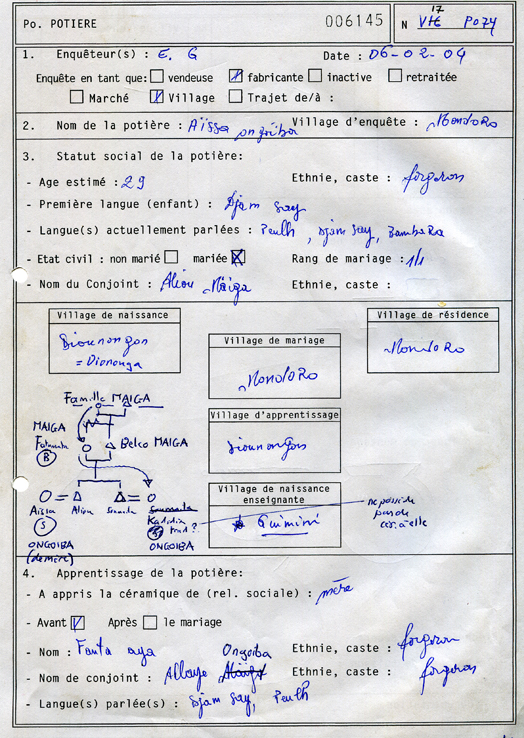 Po. POTIERE 006145 N 17 VIE POZY
1. Enquêteur(s) : E. G Date : 06-02-04
Enquête en tant que: vendeuse fabricante inactive retraitée
Marché Village Trajet de/à :
2. Nom de la potière : Aïssa ongoïba Village d'enquête : Mondoro
3. Statut social de la potière:
- Age estimé : 29 Ethnie, caste : forgeron
- Première langue (enfant) : Djam Say
- Langue(s) actuellement parlées : Peulh, Djam Say, Bambara
- Etat civil : non marié mariée Rang de mariage : 1/1
- Nom du Conjoint : Aliou Maïga Ethnie, caste :
Village de naissance
Diounongon
= Dianonga
Village de mariage
Mondoro
Village de résidence
Mondoro
Village d'apprentissage
Diounongon
Village de naissance enseignante
Guimini
ne possède pas de
Famille MAIGA
MAIGA
Fatoumata
B
Belco MAIGA
Aïssa
S
ONGOIBA
(demère)
Aliou
Kadidia
trad ?
ONGOIBA
4. Apprentissage de la potière:
- A appris la céramique de (rel. sociale) : mère
- Avant Après le mariage
- Nom : Fanta aya Ethnie, caste : forgeron
- Nom de conjoint : Allaye Ongoiba Ethnie, caste : forgeron
- Langue(s) parlée(s) : Djam Say, Peulh